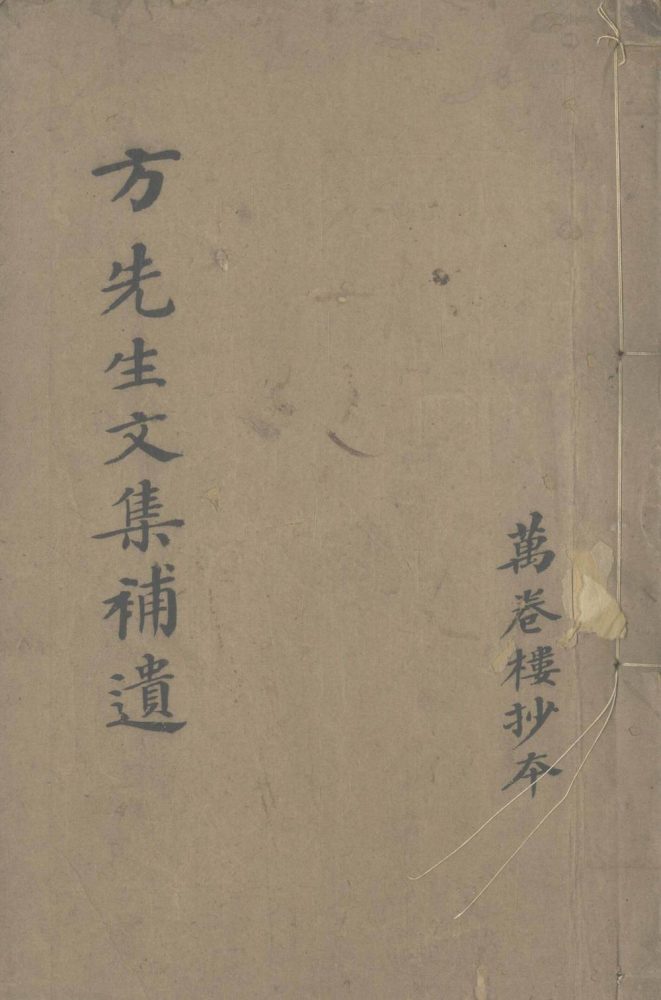 萬卷樓抄本
方先生文集補遺